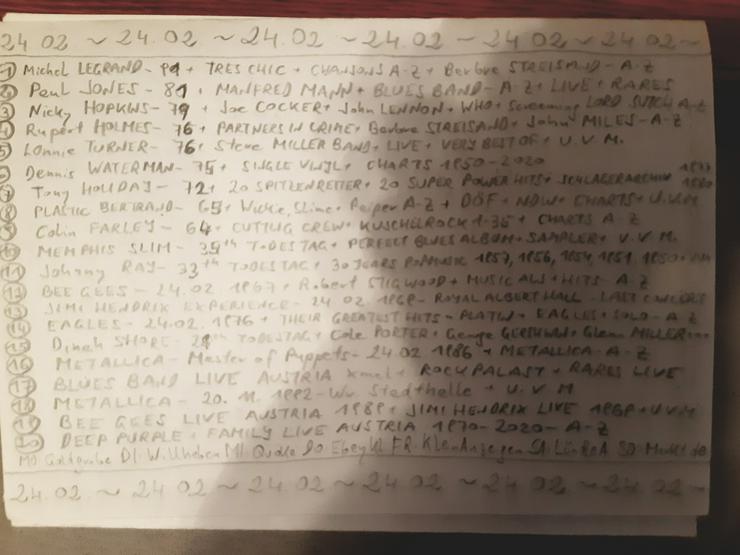 24.02 ~ 24.02 ~ 24.02 ~ 24.02 ~ 24.02 ~ 24.02 ~
1 Michel LEGRAND - 91 + TRES CHIC + CHANSONS A-Z + Barbra STREISAND - A-Z
2 Paul JONES - 81 + MANFRED MANN + BLUES BAND - A-Z + LIVE + RARES
3 Nicky HOPKINS - 79 + Joe COCKER + John LENNON + WHO + Screaming LORD SUTCH A-Z
4 Rupert HOLMES - 76 + PARTNERS IN CRIME + Barbra STREISAND + John MILES - A-Z
5 Lonnie TURNER - 76 + Steve MILLER BAND + LIVE + VERY BEST OF + U.V.M.
6 Dennis WATERMAN - 75 + SINGLE VINYL + CHARTS 1950-2020
7 Tony HOLIDAY - 72 + 20 SPITZENREITER + 20 SUPER POWER HITS + SCHLAGERARCHIV 1977 1980
8 PLASTIC BERTRAND - 69 + Wickie, Slime + Paiper A-Z + DÖF + NDW + CHARTS + U.V.M
9 Colin FARLEY - 64 + CUTTING CREW + KUSCHELROCK 1-36 + CHARTS A-Z
10 MEMPHIS SLIM - 35th TODESTAG + PERFECT BLUES ALBUM + SAMPLER + U.V.M.
11 Johnny RAY - 33th TODESTAG + 30 YEARS POPMUSIC 1957, 1956, 1954, 1951, 1950
12 BEE GEES - 24.02 1967 + Robert STIGWOOD + MUSICALS + HITS - A-Z
13 JIMI HENDRIX EXPERIENCE - 24 02 1969 - ROYAL ALBERT HALL - LAST CONCERT
14 EAGLES - 24.02. 1976 + THEIR GREATEST HITS - PLATIN + EAGLES + SOLO - A-Z
15 Dinah SHORE - 29th TODESTAG + Cole PORTER + George GERSHWIN + Glenn MILLER ...
16 METALLICA - Master of Puppets - 24.02 1986 + METALLICA - A-Z
17 BLUES BAND LIVE AUSTRIA xmal + ROCKPALAST + RARES LIVE
18 METALLICA - 20. 11. 1992 - Wr. Stadthalle + U.V.M
BEE GEES LIVE AUSTRIA 1989 + JIMI HENDRIX LIVE 1969 + U.V.M
DEEP PURPLE + FAMILY LIVE AUSTRIA 1970-2020 - A-Z
MO Goldgrube DI. Willhaben MI. Quoka DO Ebay FR. Kleinanzeigen SA. SO. Markt.de
24.02 ~ 24.02 ~ 24.02 ~ 24.02 ~ 24.02 ~ 24.02 ~